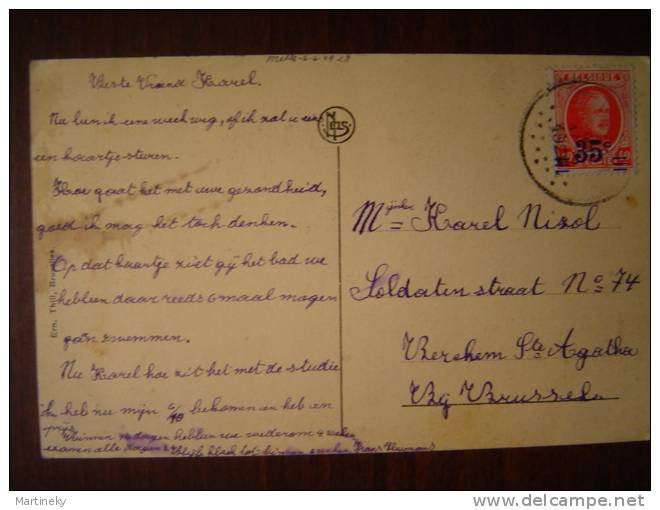 Melle
Beste Vriend Karel.
Nu ben ik eene week weg, of ik zal u een
een kaartje sturen.
Hoe gaat het met uwe gezondheid,
goed ik mag het toch denken.
Op dat kaartje ziet gij het bad we
hebben daar reeds 6 maal mogen
gaan zwemmen.
Nu Karel hoe zit het met de studie
ik heb nu mijn 6/10 bekomen en heb en
prijs
binnen dagen hebben we wederom 4 weken
examen alle dagen
Ern. Thill, Bruxelles
NELS
BELGIQUE
35c
Mijnher Karel Nizol
Soldaten straat No 74
Berchem Ste Agatha
Bij Brussel
Martineky
delcampe.net